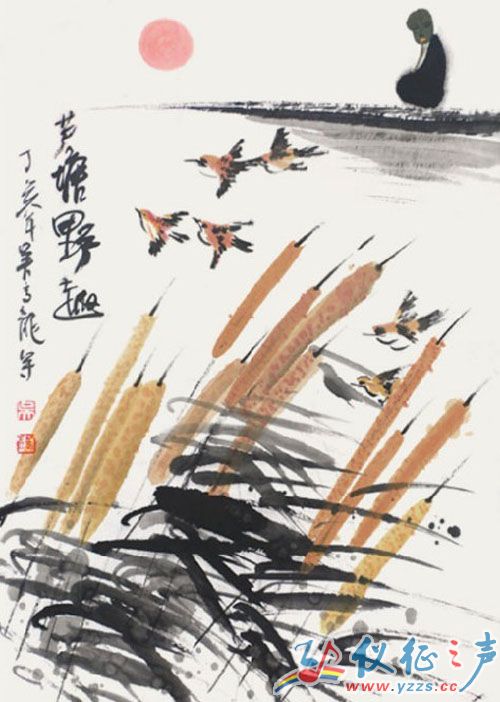 芦塘野趣
丁亥年吴 龙写
仪征之声
www.yzzs.cn